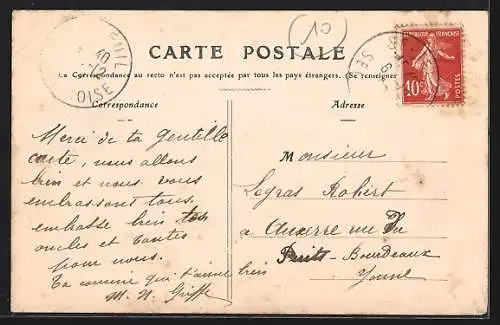 (10)
CARTE POSTALE
La Correspondance au recto n'est pas acceptée par tous les pays étrangers. (Se renseigner
OISE
10c
Correspondance
Adresse
Merci de ta gentille
carte, nous allons
bien et nous vous
embrassons tous.
embrasse bien tes
oncles et tantes
pour nous.
Ta cousine qui t'aime bien
M. N. Griffe
Monsieur
Legras Robert
a Auxerre rue du
Puits - Bourdeaux
Yonne